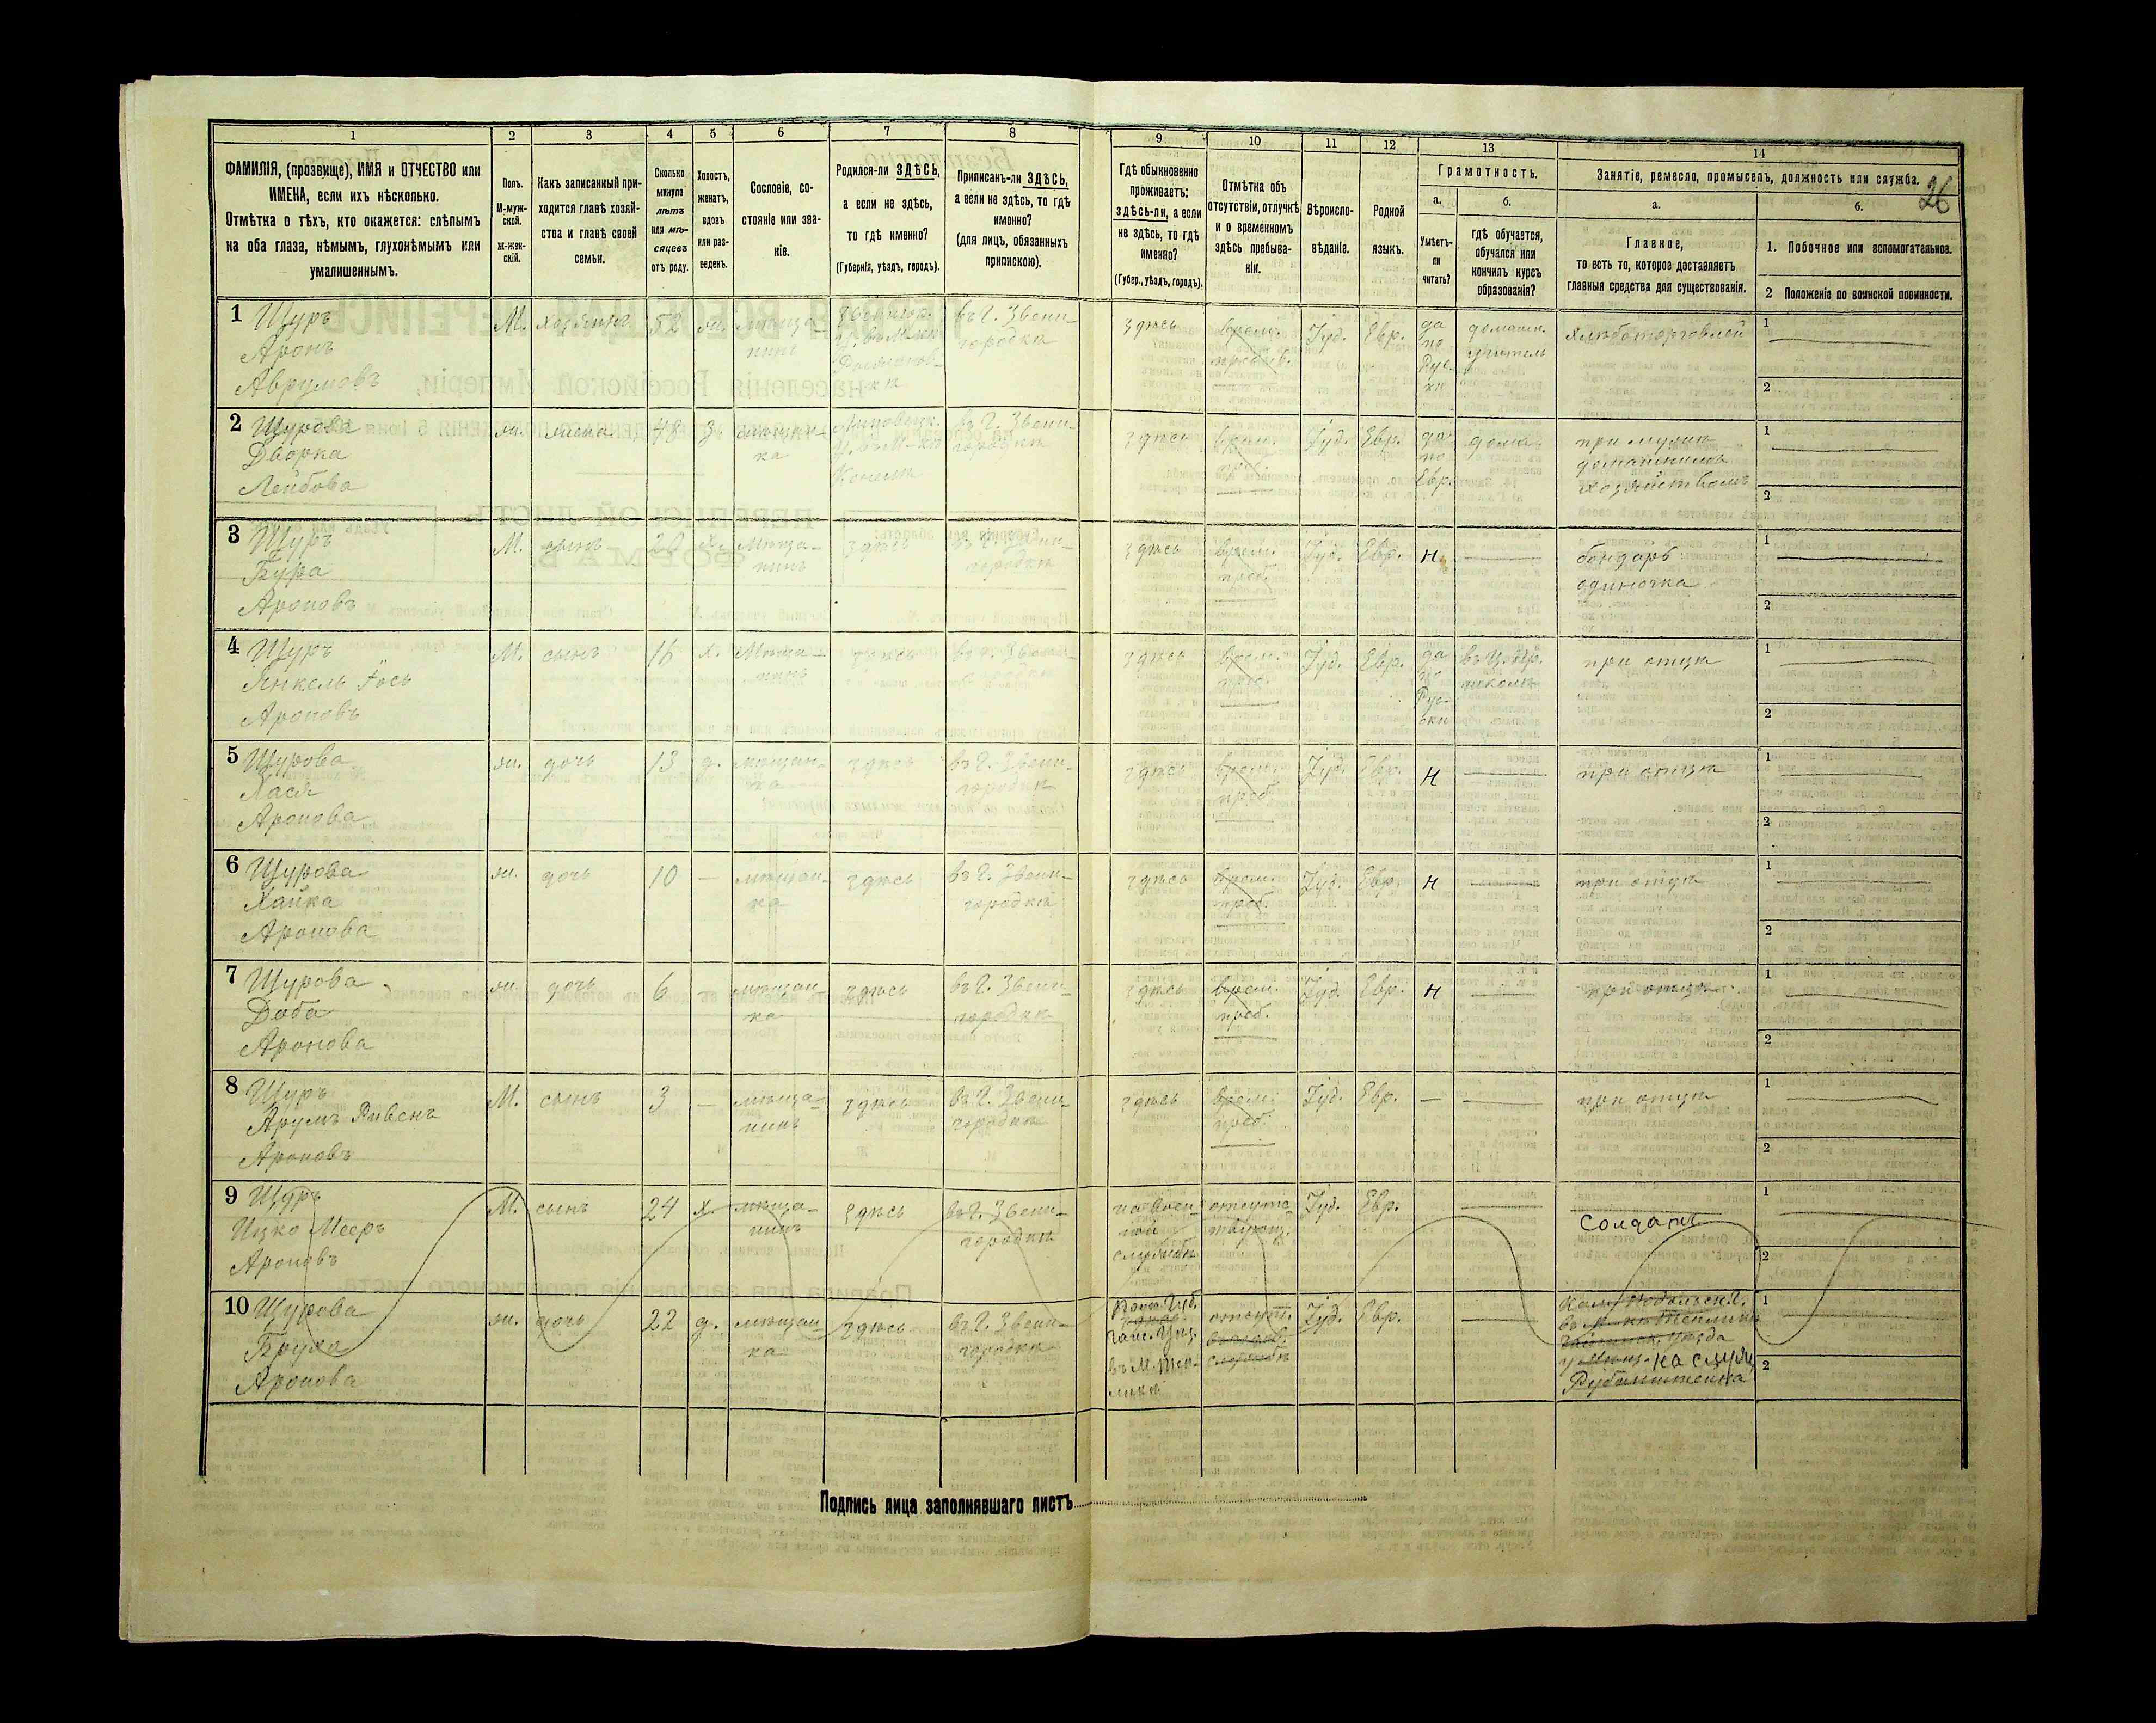 1 2 3 4 5 6 7 8 9 10 11 12 13 14
26
ФАМИЛІЯ, (прозвище), ИМЯ и ОТЧЕСТВО или
ИМЕНА, если ихъ нѣсколько.
Отмѣтка о тѣхъ, кто окажется: слѣпымъ
на оба глаза, нѣмымъ, глухонѣмымъ или
умалишеннымъ.
Полъ.
М-муж-
ской.
ж-жен-
скій.
Какъ записанный при-
ходится главѣ хозяй-
ства и главѣ своей
семьи.
Сколько
минуло
лѣтъ
или мѣ-
сяцевъ
отъ роду.
Холостъ,
женатъ,
вдовъ
или раз-
веденъ.
Сословіе, со-
стояніе или зва-
ніе.
Родился-ли ЗДѢСЬ,
а если не здѣсь,
то гдѣ именно?
(Губернія, уѣздъ, городъ).
Приписанъ-ли ЗДѢСЬ,
а если не здѣсь, то гдѣ
именно?
(для лицъ, обязанныхъ
припискою).
Гдѣ обыкновенно
проживаетъ:
здѣсь-ли, а если
не здѣсь, то гдѣ
именно?
(Губер., уѣздъ, городъ).
Отмѣтка объ
отсутствіи, отлучкѣ
и о временномъ
здѣсь пребыва-
ніи.
Вѣроиспо-
вѣданіе.
Родной
языкъ.
Грамотность.
а.
Умѣетъ-
ли
читать?
б.
гдѣ обучается,
обучался или
кончилъ курсъ
образованія?
Занятіе, ремесло, промыселъ, должность или служба.
а.
Главное,
то есть то, которое доставляетъ
главныя средства для существованія.
б.
1. Побочное или вспомогательное.
2 Положеніе по воинской повинности.
1 Щуръ
Аронъ
Аврумовъ
М.
хозяинъ
52
ж.
мѣща-
нинъ
въ г. Звени-
городкѣ
здѣсь
врем.
Іуд.
Евр.
да
по
Рус-
ки
домашн.
учитель
Хлѣботорговлей
1
2
2 Щурова
Дворка
Лейбова
ж.
жена
48
З
мѣщан-
ка
Липовецк.
въ г. Звени-
городкѣ
здѣсь
врем.
Іуд.
Евр.
да
по
Евр.
дома
при мужѣ
домашнимъ
хозяйствомъ
1
2
3 Щуръ
Бура
Ароновъ
М.
сынъ
х.
Мѣща-
нинъ
здѣсь
въ г. Звени-
городкѣ
здѣсь
врем.
преб.
Іуд.
Евр.
н
бондарь
одиночка
1
2
4 Щуръ
Янкель Іось
Ароновъ
М.
сынъ
16
х.
Мѣща-
нинъ
здѣсь
въ г. Звени-
городкѣ
здѣсь
врем.
преб.
Іуд.
Евр.
да
по
Рус-
ски
школѣ
при отцѣ
1
2
5 Щурова
Хася
Аронова
ж.
дочь
13
д.
мѣщан-
ка
здѣсь
въ г. Звени-
городкѣ
здѣсь
врем.
преб.
Іуд.
Евр.
н
при отцѣ
1
2
6 Щурова
Хайка
Аронова
ж.
дочь
10
—
мѣщан-
ка
здѣсь
въ г. Звени-
городкѣ
здѣсь
врем.
преб.
Іуд.
Евр.
н
при отцѣ
1
2
7 Щурова
Доба
Аронова
ж.
дочь
6
—
мѣщан-
ка
здѣсь
въ г. Звени-
городкѣ
здѣсь
врем.
преб.
Іуд.
Евр.
н
при отцѣ
1
2
8 Щуръ
Арумъ Рувенъ
Ароновъ
М.
сынъ
3
—
мѣща-
нинъ
здѣсь
въ г. Звени-
городкѣ
здѣсь
врем.
преб.
Іуд.
Евр.
—
при отцѣ
1
2
9 Щуръ
Ицко Мееръ
Ароновъ
М.
сынъ
24
х.
мѣща-
нинъ
здѣсь
въ г. Звени-
городкѣ
на Воен-
ной
службѣ
отсутс-
твующ.
Іуд.
Евр.
Солдатъ
1
2
10 Щурова
Бруха
Аронова
ж.
дочь
22
д.
мѣщан-
ка
здѣсь
въ г. Звени-
городкѣ
Гайс. уѣз.
въ М. Теп-
ликѣ
отсут.
Іуд.
Евр.
Подольск. г.
въ м-кѣ Тепликѣ
уѣзда
на служ.
1
2
Подпись лица заполнявшаго листъ